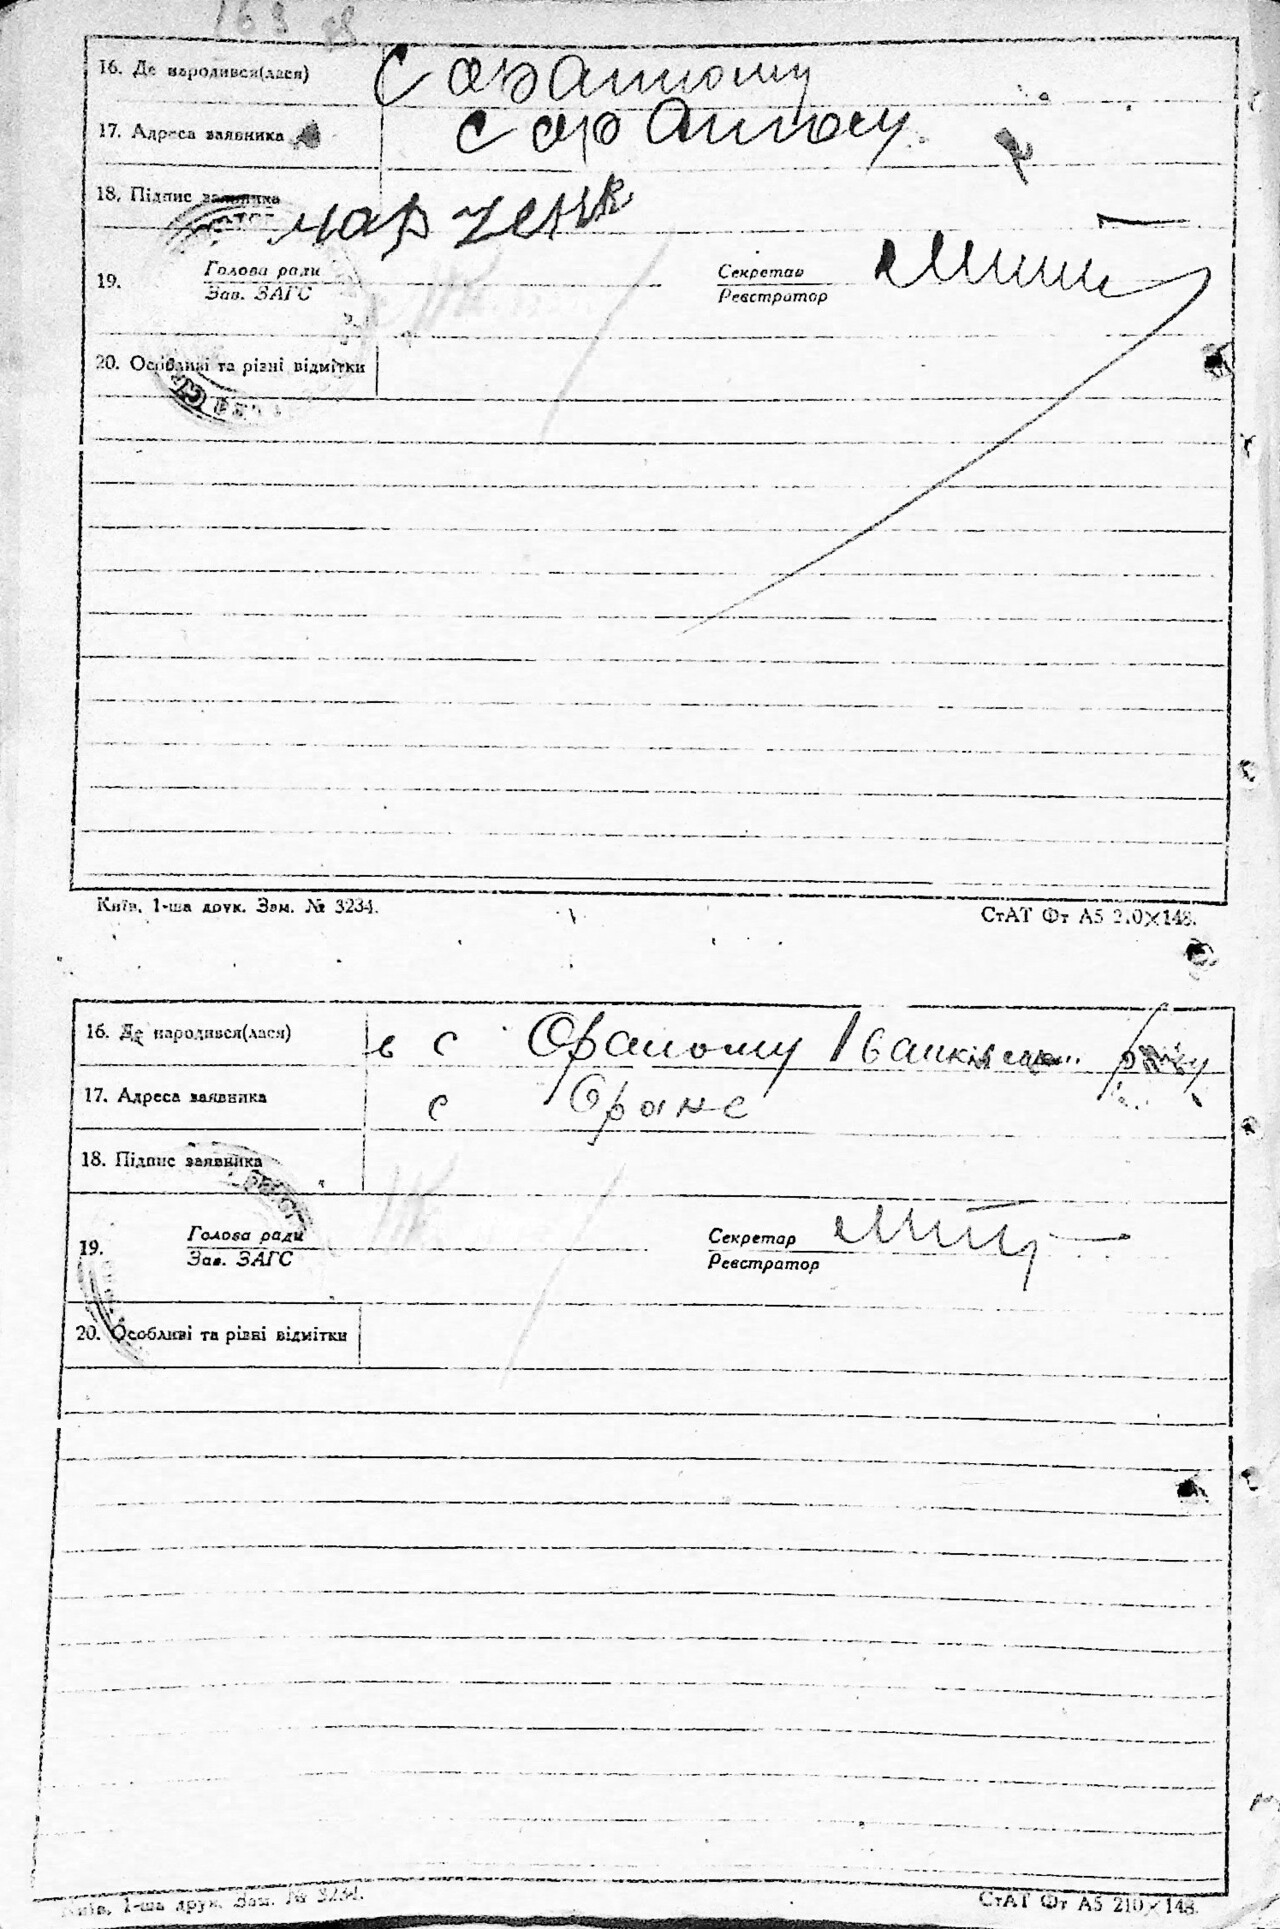 16. Де народився(лася) с оранному
17. Адреса заявника с оранному
18. Підпис заявника марченк
Голова ради Секретар
19.
Зав. ЗАГС Реєстратор
20. Особливі та різні відмітки
Київ, 1-ша друк. Зам. № 3234. СтАТ Фт А5 210×148.
16. Де народився(лася) в с Ораному Іванківськ. р-ну
17. Адреса заявника с Оране
18. Підпис заявника
Голова ради Секретар
19.
Зав. ЗАГС Реєстратор
20. Особливі та різні відмітки
Київ, 1-ша друк. Зам. № 3234. СтАТ Фт А5 210×148.